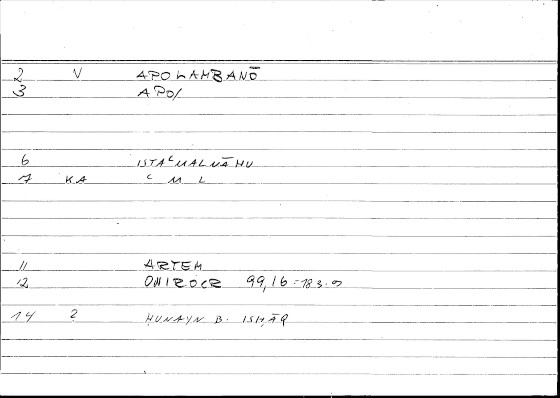 2 V APOLAMBANŌ
3 APO/
6 ISTAʿMALNĀHU
7 KA ʿ M L
11 ARTEM
12 ONIROCR 99,16 = 183.9
14 2 ḤUNAYN B. ISḤĀQ